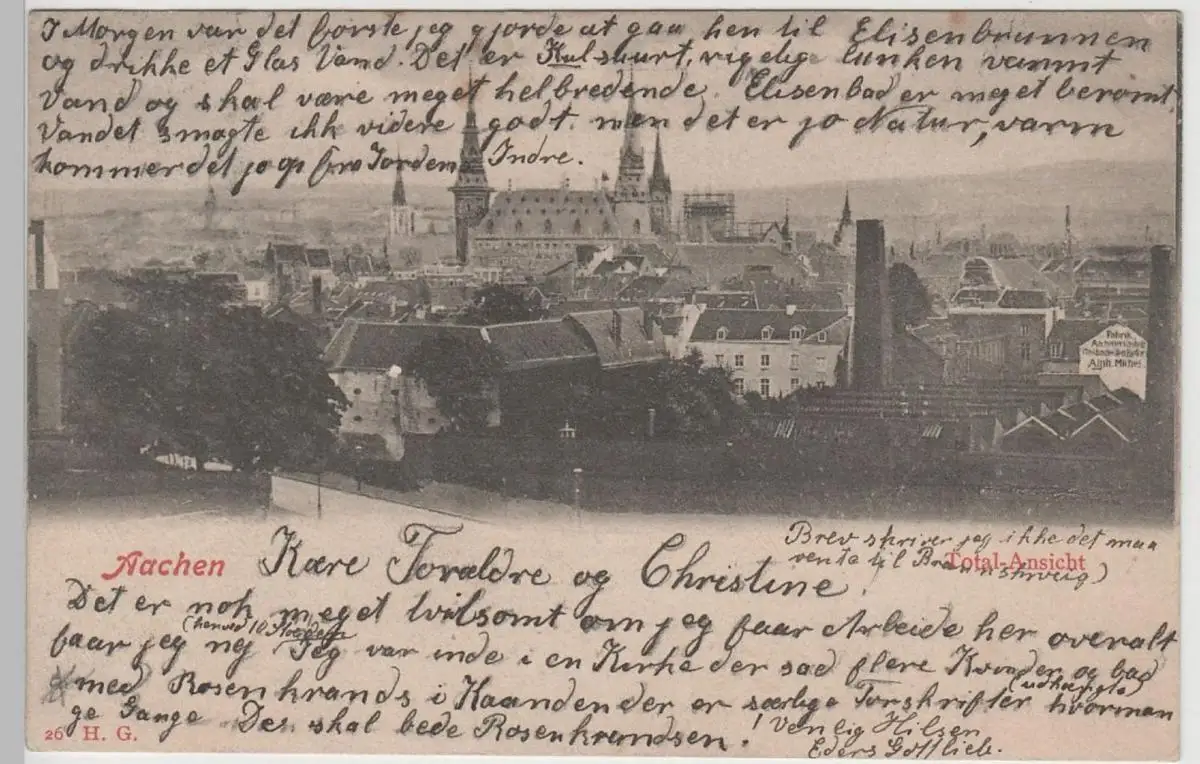 I Morgen var det første jeg gjorde at gaa hen til Elisenbrunnen
og drikke et Glas Vand. Det er Kulsuurt, rigelig lunken varmt
Vand og skal være meget helbredende. Elisenbad er meget berømt,
Vandet smagte ikk videre godt men det er jo Natur, varm
kommer det jo op fra Jordens Indre.
Fabrik
Alph.
Brev skriver jeg ikke det maa
vente til Braunschweig)
Aachen Kære Forældre og Christine! Total-Ansicht
Det er nok meget tvilsomt om jeg faar Arbeide her overalt
(henved 10
faar jeg nej Jeg var inde i en Kirke der sad flere Kvinder og bad
med Rosenkrands i Haanden der er særlige Forskrifter (udhængte) hvorman
ge Gange Des skal bede Rosenkrandsen. ! Venlig Hilsen
Eders Gottlieb.
26 H. G.